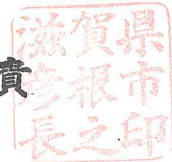 滋賀県
彦根市
長之印
貴